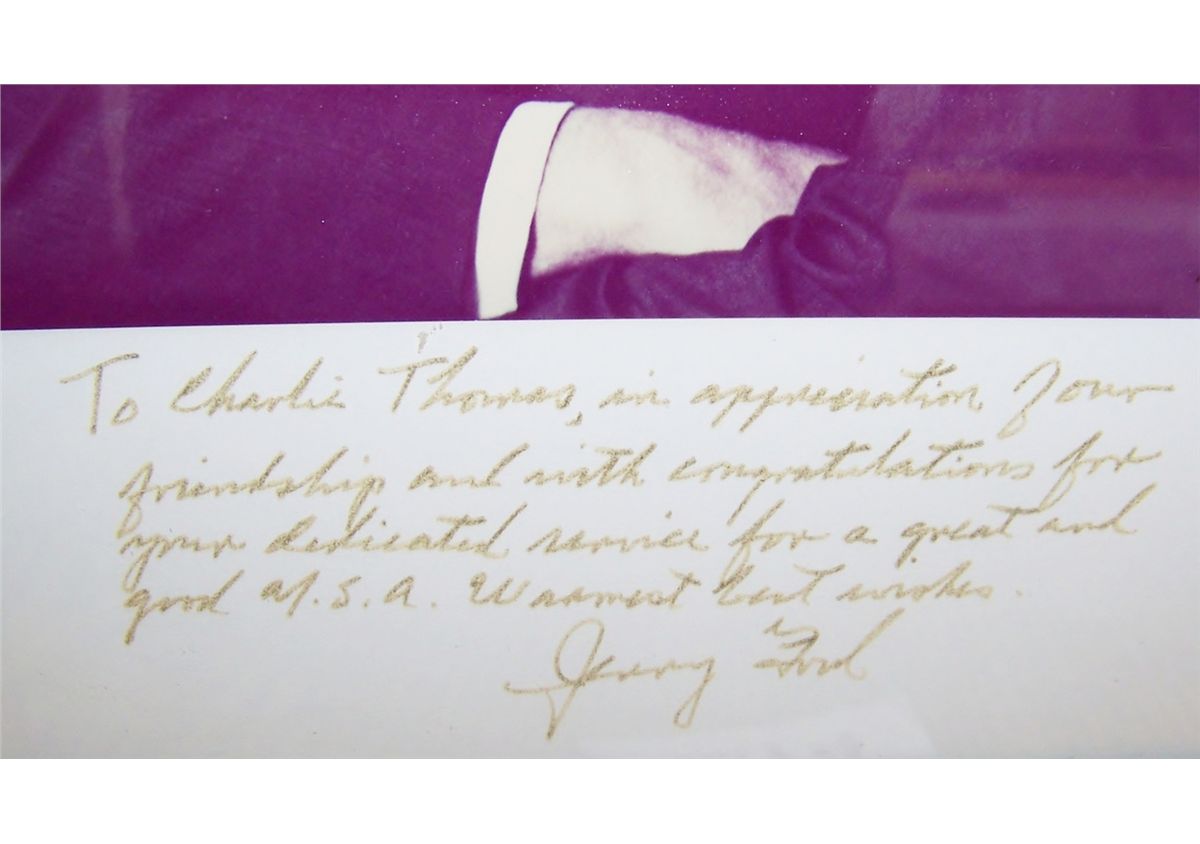 To Charlie Thomas, in appreciation of your
friendship and with congratulations for
your dedicated service for a great and
good U.S.A. Warmest best wishes.
Jerry Ford